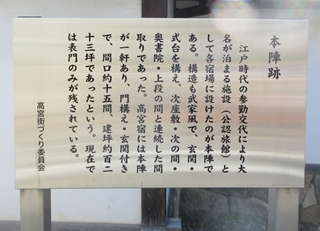 本陣跡
江戸時代の参勤交代により大
名が泊まる施設（公認旅館）と
して各宿場に設けたのが本陣で
ある。構造も武家風で、玄関・
式台を構え、次座敷・次の間・
奥書院・上段の間と連続した間
取りであった。高宮宿には本陣
が一軒あり、門構え・玄関付き
で、間口約十五間、建坪約百二
十三坪であったという。現在で
は表門のみが残されている。
高宮街づくり委員会